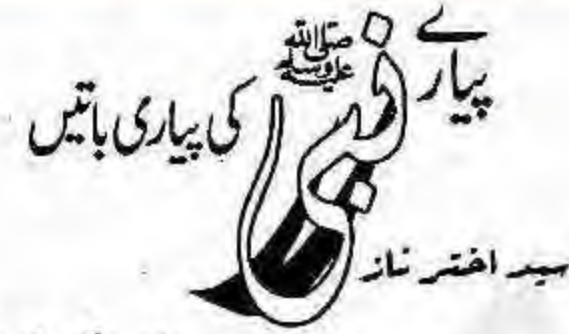 پیارے نبی صلی اللہ علیہ وسلم کی پیاری باتیں
سید اختر ناز